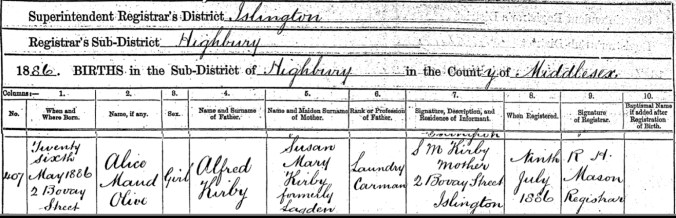 Superintendent Registrar's District Islington
Registrar's Sub-District Highbury
1886. BIRTHS in the Sub-District of Highbury in the County of Middlesex.
Columns:— 1. 2. 3. 4. 5. 6. 7. 8. 9. 10.
No. When and Where Born. Name, if any. Sex. Name and Surname of Father. Name and Maiden Surname of Mother. Rank or Profession of Father. Signature, Description, and Residence of Informant. When Registered. Signature of Registrar. Baptismal Name if added after Registration of Birth.
407
Twenty
Sixth
May 1886
2 Bovay
Street
Alice
Maud
Olive
Girl
Alfred
Kirby
Susan
Mary
Kirby
formerly
Lagden
Laundry
Carman
S M Kirby
Mother
2 Bovay Street
Islington
Ninth
July
1886
R H
Mason
Registrar